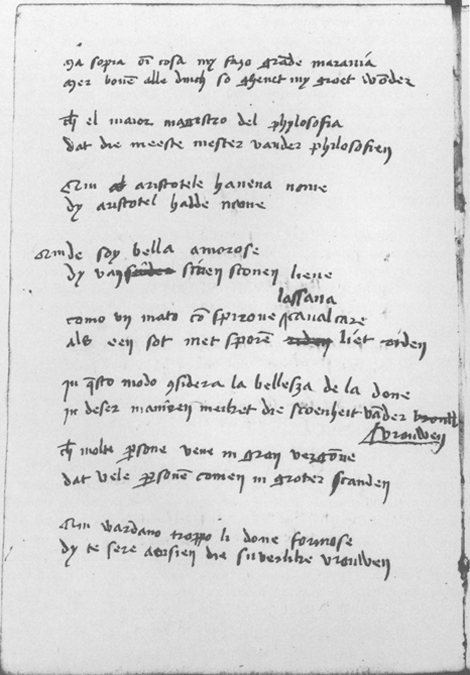 Ma sopra oī cosa my fazo grāde maravia
Mer bouen alle dinch so gheuet my groet wōder
ch̄ el maior magistro del phylosofia
dat die meeste mester vander philosofien
Quj aristotele haveua nome
dy aristotel hadde nome
de soy bella amorose
dy van sinen sconen lieue
lassaua
como un mato cō spirone cavalcare
als een sot met sporē liet riden
in q̄sto modo 9sidera la bellesza de la done
in deser maniren merket die scoenheit vāder
vrouwen
ch̄ molte p̄sone vene in gran vergōne
dat vele p̄sonē comen in groter scanden
Quj vardano troppo li done formose
dy te sere aensien die suverlike vrouwen